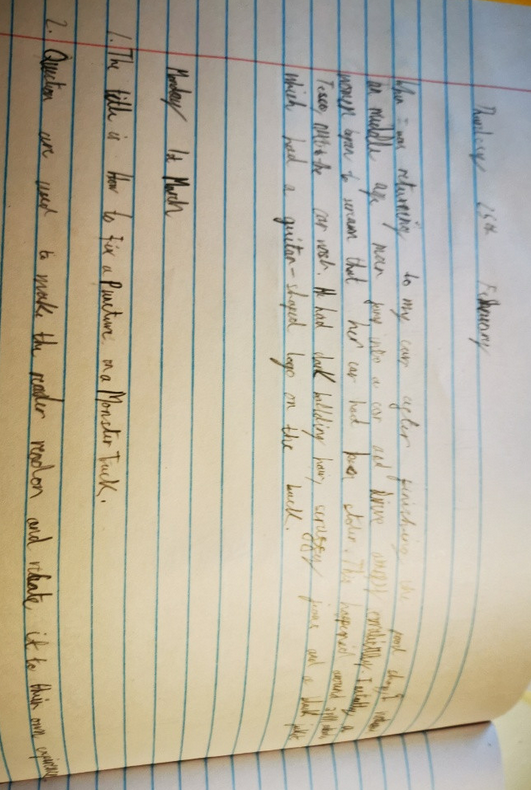 Thursday 25th February
When I was returning to my car after finishing the food shop I
a middle age man jump into a car and drive away erratically. a
women began to scream that her car had been stolen. This happened around
Tesco, the car wash. He had dark balding hair, scruggy jeans and a black
which had a guitar-shaped logo on the back.
Monday 1st March
1. The title is how to fix a Puncture on a Monster Tuck.
2. Question are used to make the reader readon and relate it to their own